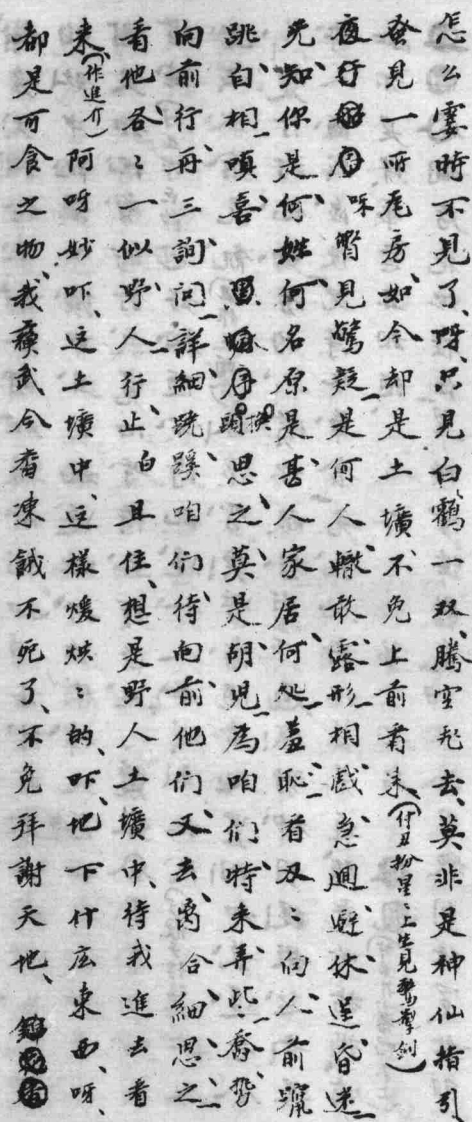 怎么霎時不見了、呀、只見白鶴一双、騰空飛去、莫非是神仙指引
我見一所尾房、如今却是土壙、不免上前看来（付丑扮星〻上生見驚拏剑）
夜行 呀瞥見驚疑、是何人、轍敢露形相戲、急迴避、休逞昏迷、
先知、你是何姓何名、原是甚人家居何処、羞恥、看双〻向人前躧
跳、白相、嗔喜、換頭思之、莫是胡児、為咱们特来弄此喬势、
向前行再三詢问、詳細跷蹊、咱们待向前他们又去、离合細思之、
看他各〻一似野人行止、白且住、想是野人土壙中、待我進去看
来、（作進介）阿呀妙吓、这土壙中、这樣煖烘〻的、吓、地下什庅東西、呀、
都是可食之物、我蘇武今番凍餓不死了、不免拜謝天地、